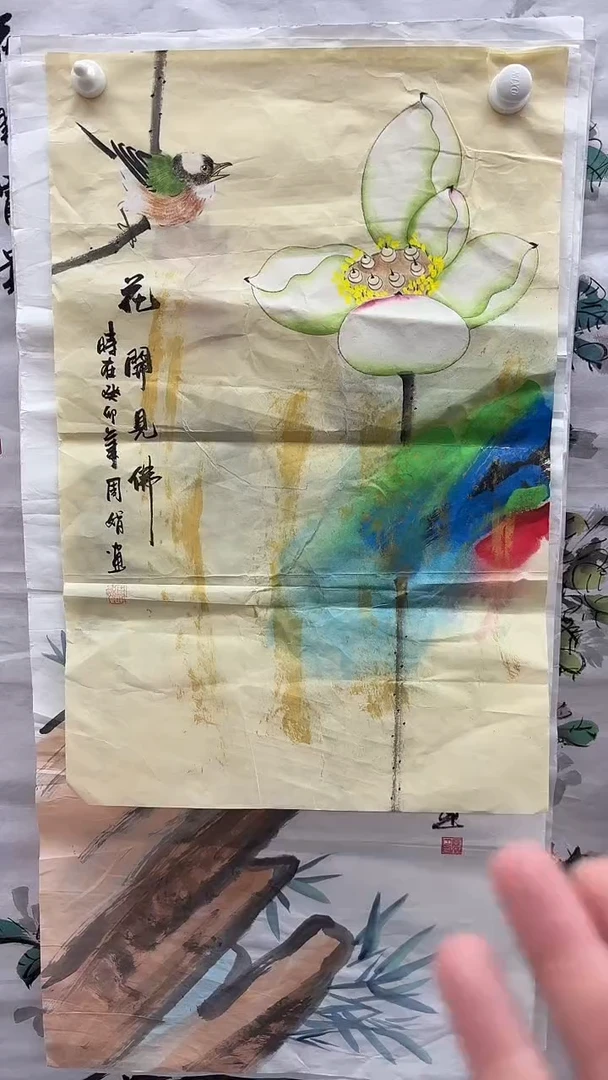 花開見佛
時在癸卯年周娟画